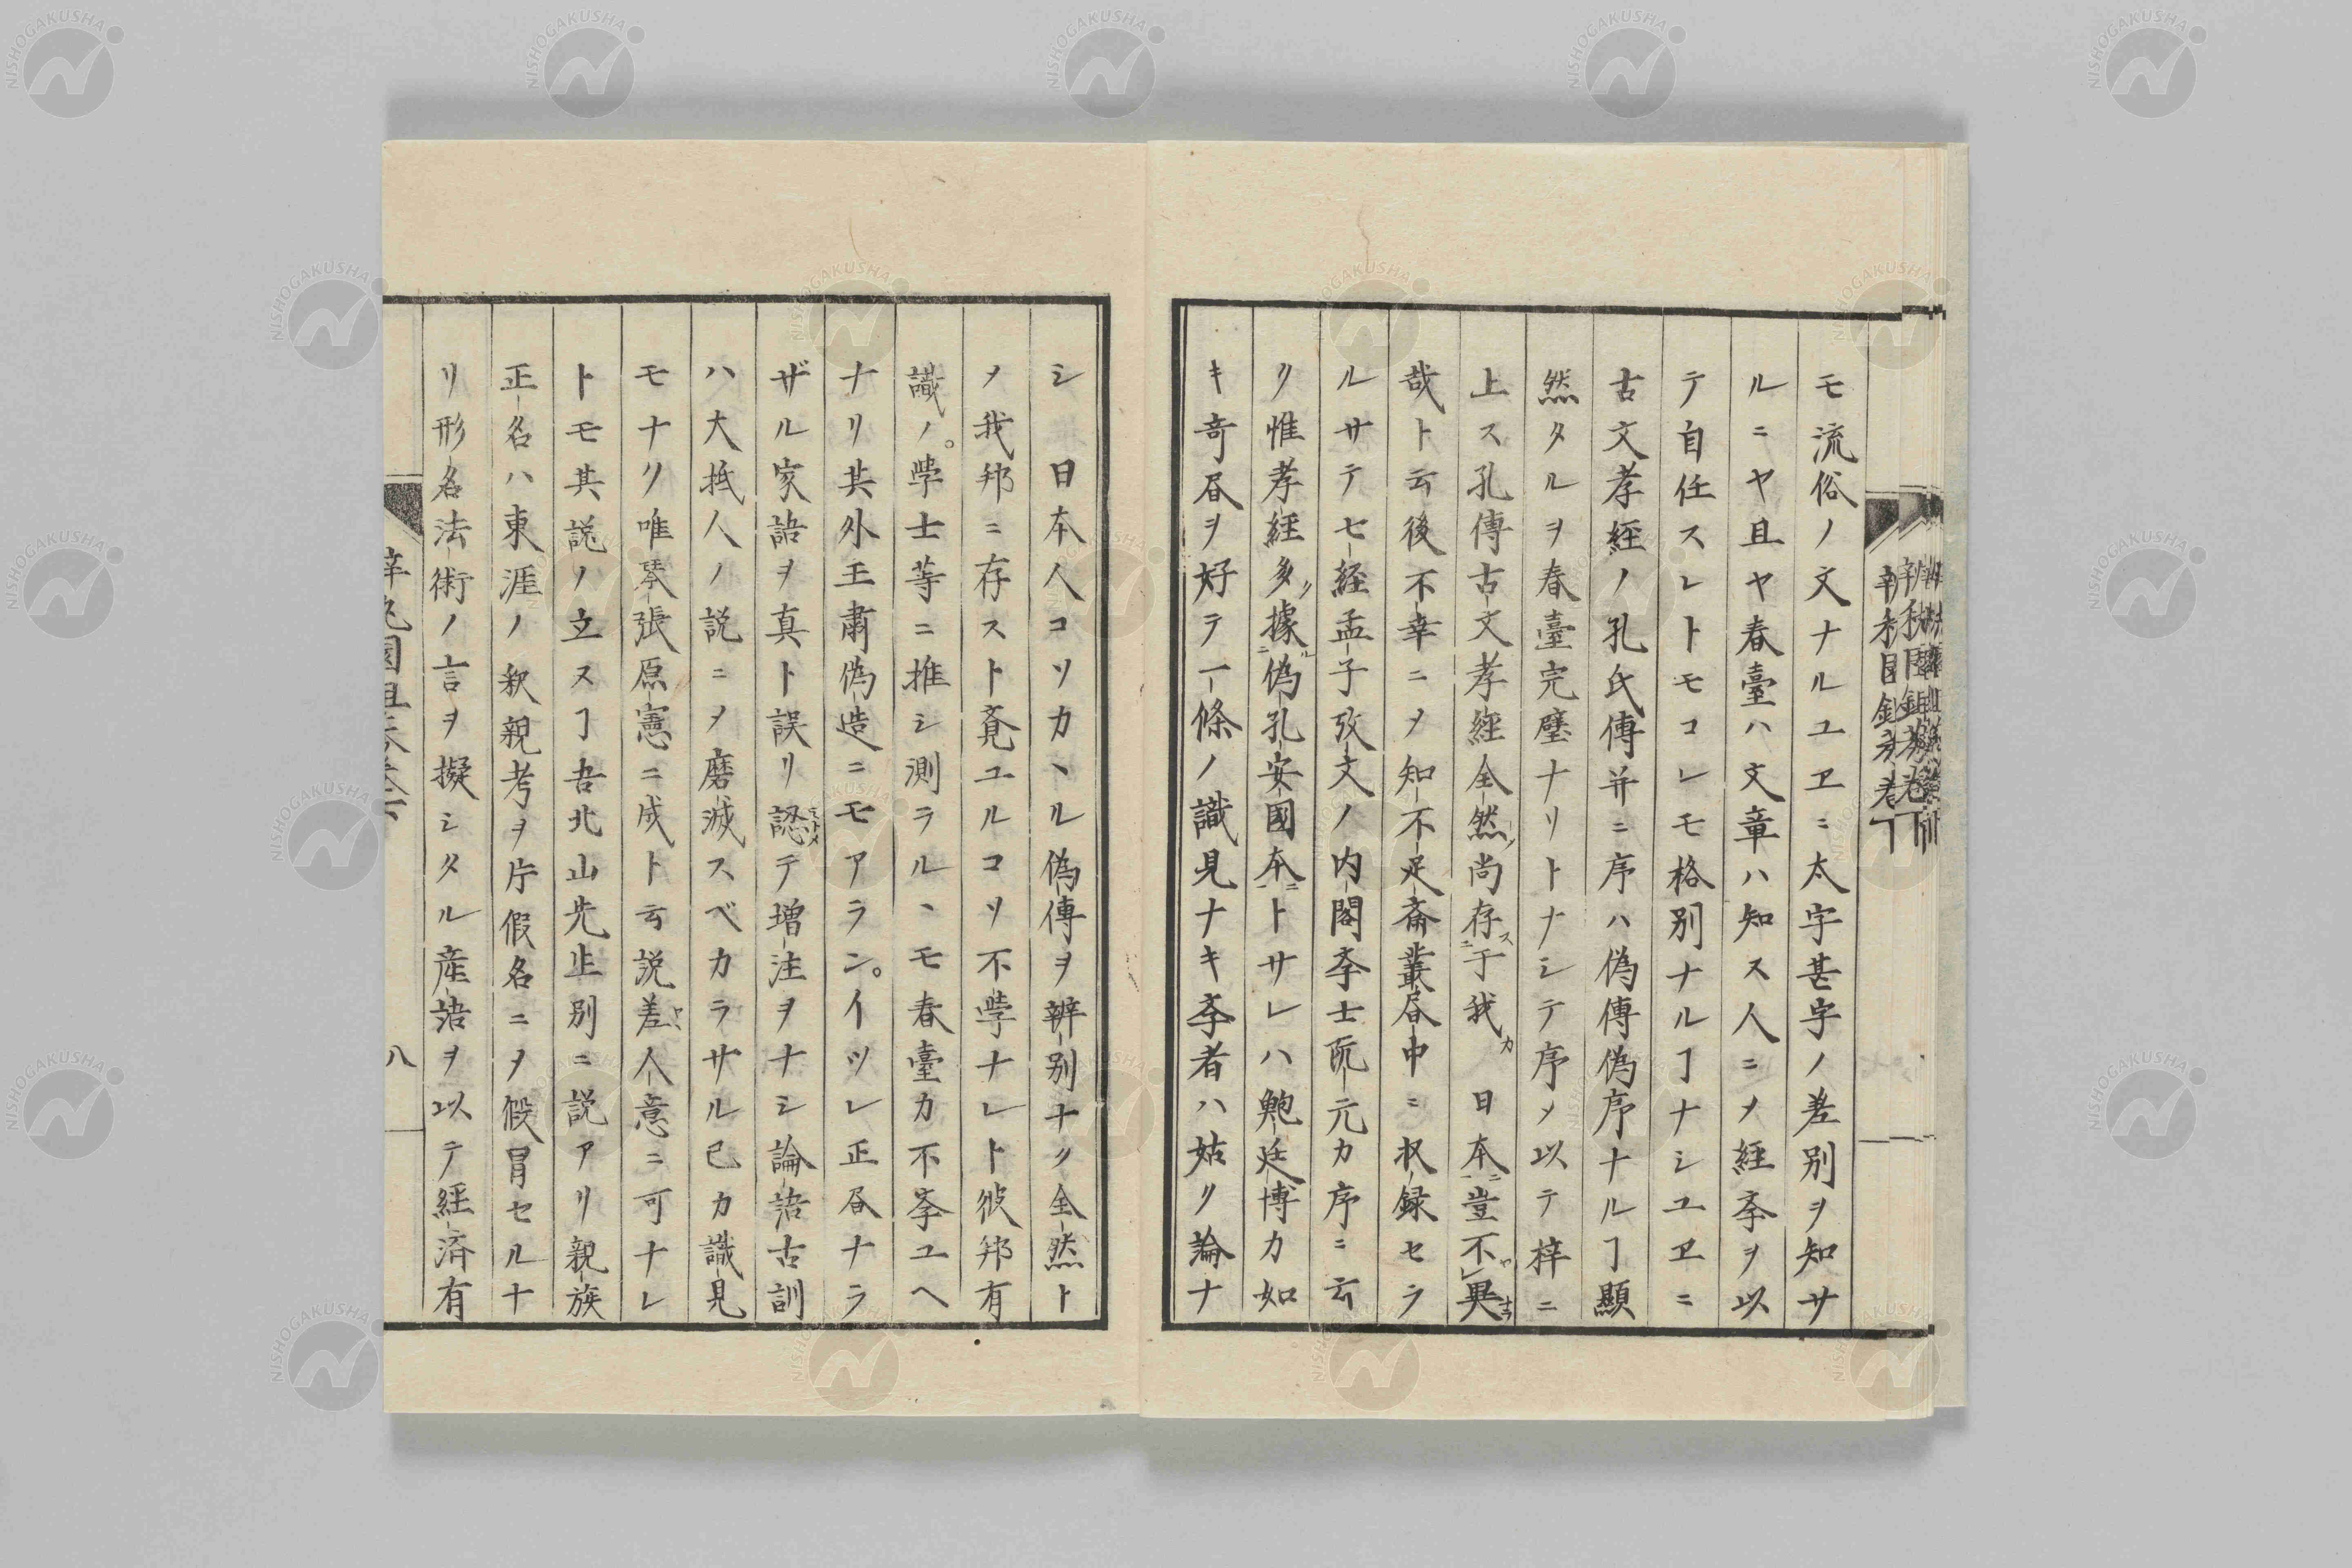 モ流俗ノ文ナルユヱニ太宇甚宇ノ差別ヲ知サ
ルニヤ且ヤ春臺ハ文章ハ知ス人ニメ經斈ヲ以
テ自任スレトモコレモ格別ナルヿナシユヱニ
古文孝經ノ孔氏傳并ニ序ハ偽傳偽序ナルヿ顯
然タルヲ春臺完璧ナリトナシテ序メ以テ梓ニ
上ス孔傳古文孝經全然尚存于我 日本豈不異
哉ト云後不幸ニメ知不足斎叢昼中ニ収録セラ
ルサテ七經孟子攷文ノ内閣斈士阮元カ序ニ云
リ惟孝經多據偽孔安國本トサレハ鮑廷博カ如
キ奇昼ヲ好テ一條ノ識見ナキ斈者ハ姑ク論ナ
シ 日本人コソカヽル偽傳ヲ辨別ナク全然ト
メ我邦ニ存スト覔ユルコソ不斈ナレト彼邦有
識ノ。斈士等ニ推シ測ラルヽモ春臺カ不斈ユヘ
ナリ其外王肅偽造ニモアラン。イツレ正昼ナラ
ザル家語ヲ真ト誤リ認テ増注ヲナシ論語古訓
ハ大抵人ノ説ニメ磨滅スベカラサル己カ識見
モナリ唯琴張原憲ニ成ト云説差人意ニ可ナレ
トモ其説ノ立スヿ吾北山先生別ニ説アリ親族
正名ハ東涯ノ釈親考ヲ片假名ニメ假冒セルナ
リ形名法術ノ言ヲ擬シタル産語ヲ以テ經済有
八
NISHOGAKUSHA